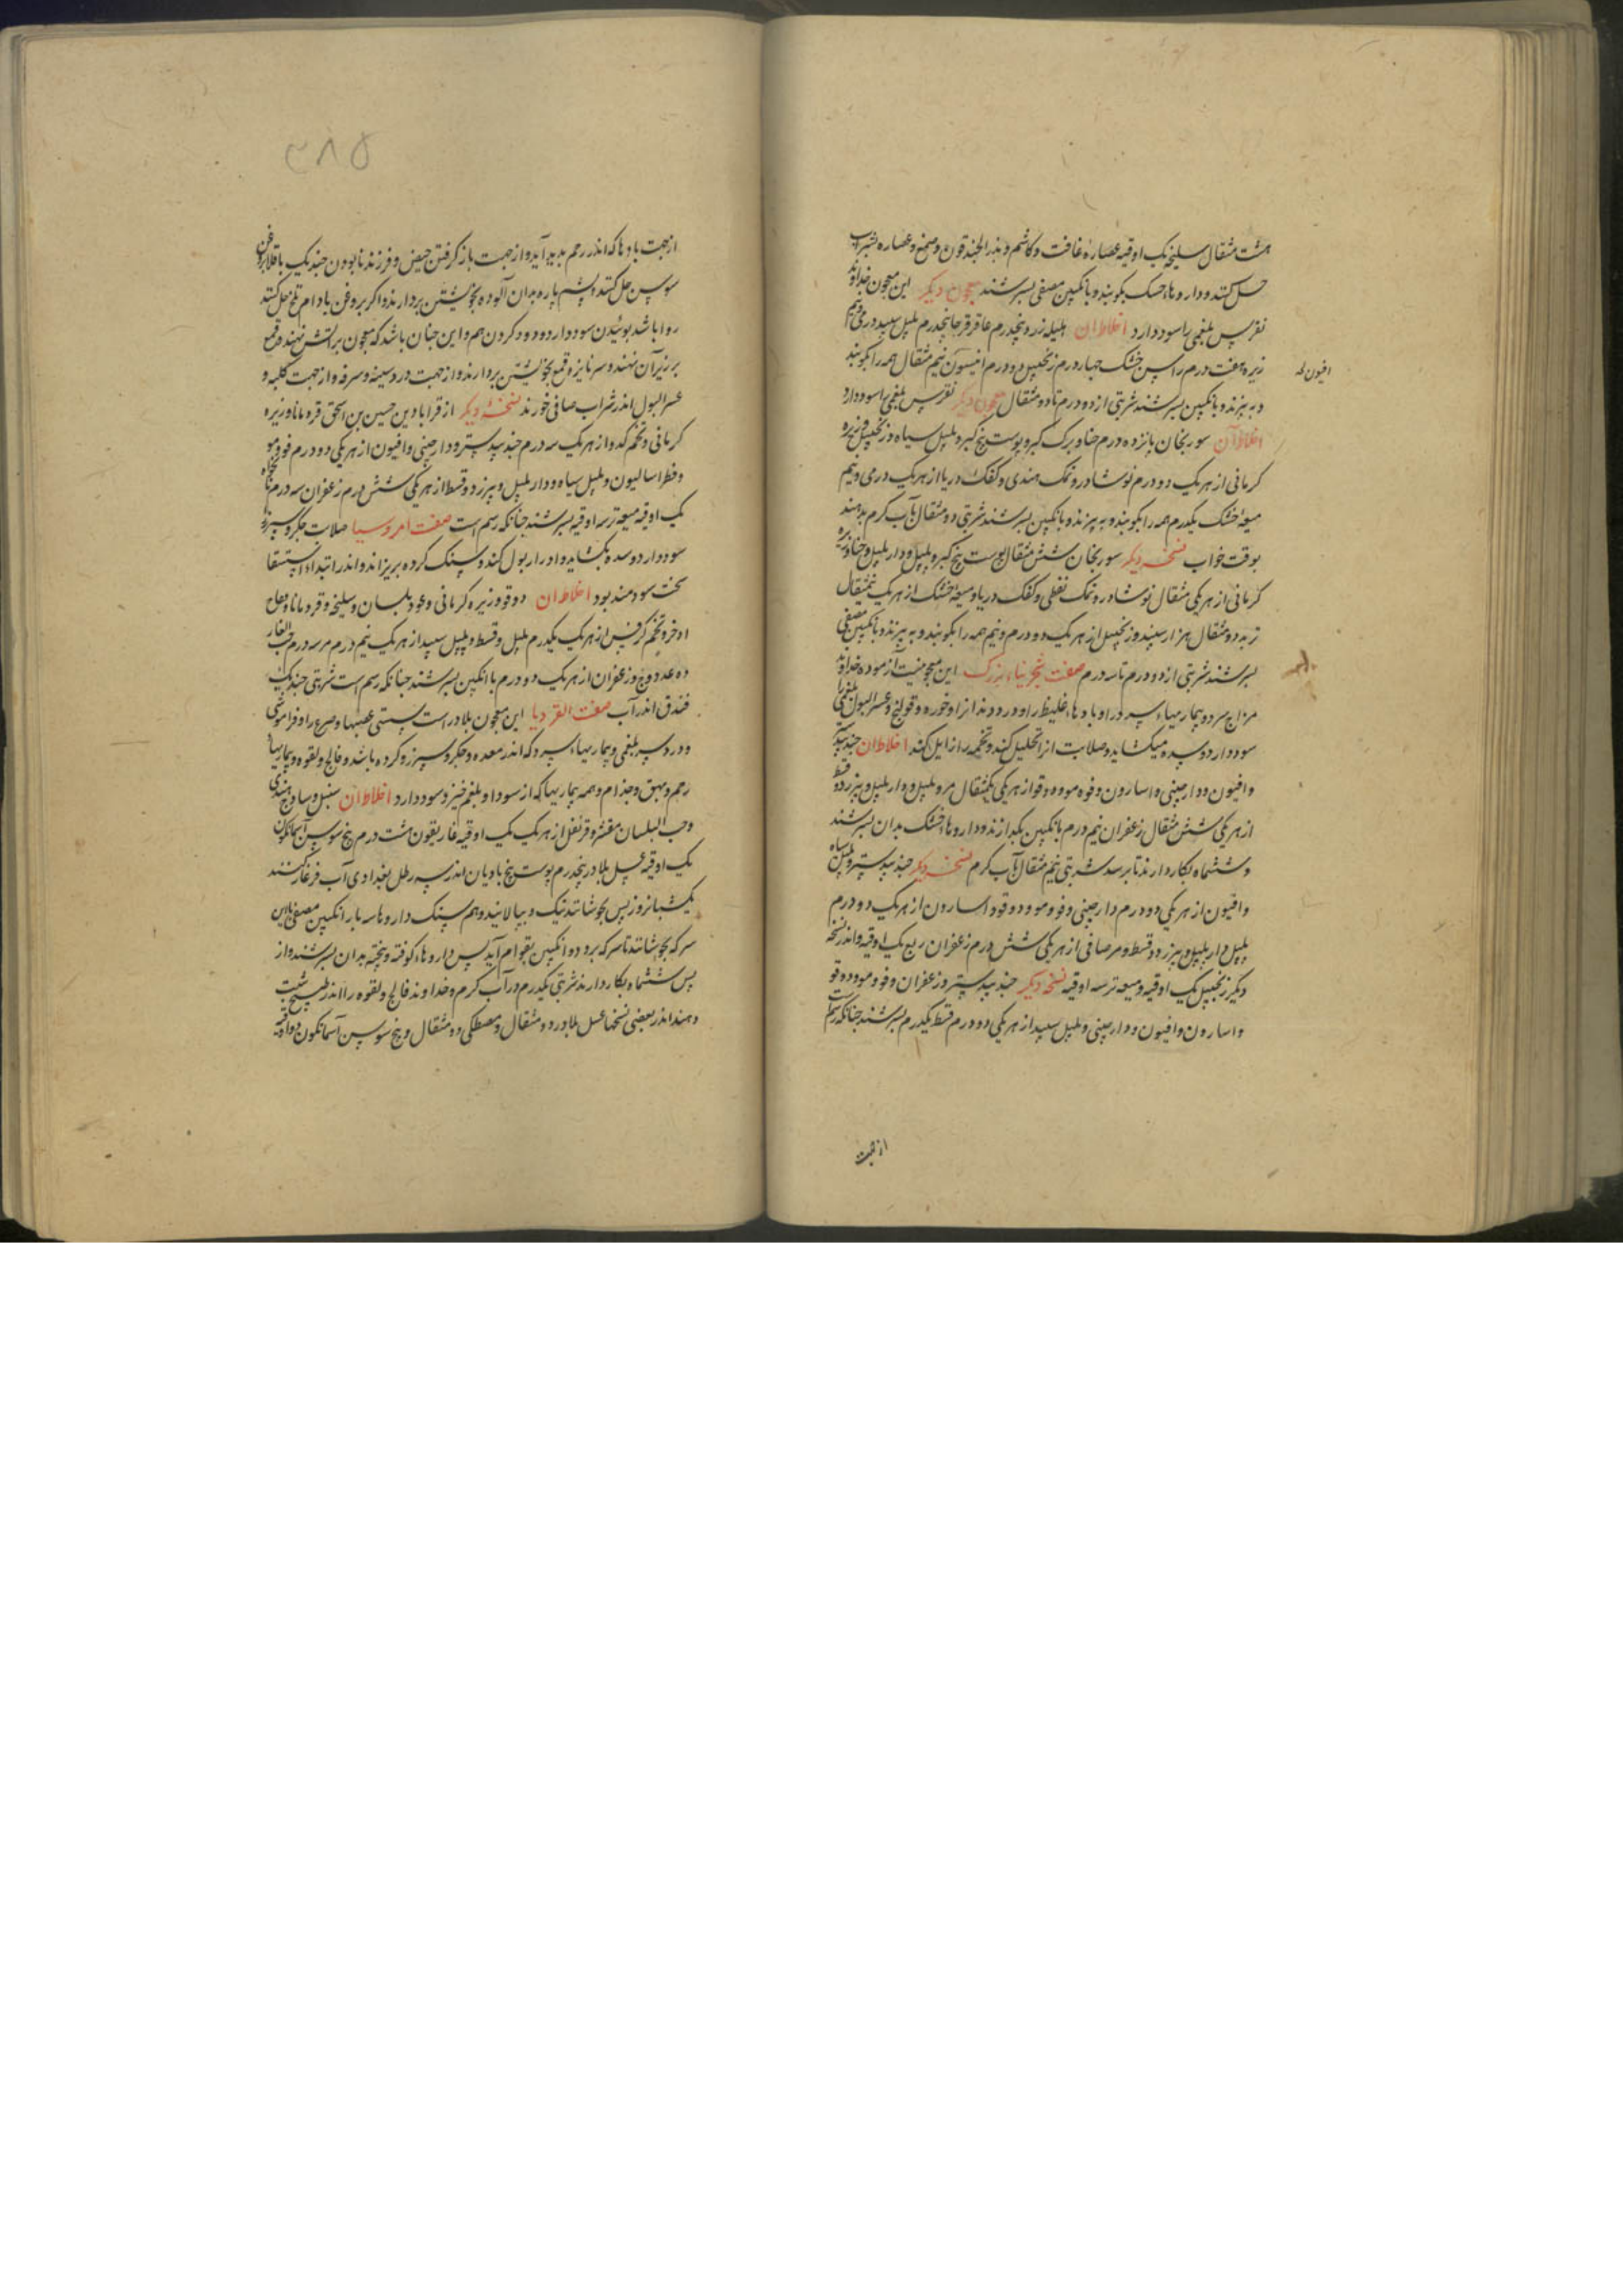 هشت مثقال سلیخه یک اوقیه عصاره غافت و کاشم و بذر الجندقون و صمغ و عصاره بشراب
حل کنند و داروها خشک بکوبند و بانکبین مصفی بسرشند معجون دیکر این معجون خداوند
نقرس بلغمی را سود دارد اخلاط آن هلیله زرد پنجدرم عاقرقرحا پنجدرم پلپل سپید درمی و نیم
زیره هفت درم راسن خشک چهار درم زنجبیل دو درم انیسون نیم مثقال همه را بکوبند
افیون
و ببیزند و بانکبین بسرشند شربتی از دو درم تا دو مثقال معجون دیکر نقرس بلغمی را سود دارد
اخلاط آن سورنجان پانزده درم حنا و برک کبر و پوست بیخ کبر و پلپل سیاه و زنجبیل و زیره
کرمانی از هر یک دو درم نوشادر و نمک هندی و کفک دریا از هر یک درمی و نیم
میعه خشک یکدرم همه را بکوبند و ببیزند و بانکبین بسرشند شربتی دو مثقال بآب کرم بدهند
بوقت خواب نسخه دیکر سورنجان شش مثقال پوست بیخ کبر و پلپل و دارپلپل و حنا و زیره
کرمانی از هر یکی مثقال نوشادر و نمک نفطی و کفک دریا و میعه خشک از هر یک نیمثقال
تربد دو مثقال هزار سپند و زنجبیل از هر یک دو درم و نیم همه را بکوبند و ببیزند و بانکبین مصفی
بسرشند شربتی از دو درم تا سه درم صفت شجرینا بزرک این معجونیست آزموده خداوند
مزاج سرد و بیماریهاء سرد را و بادهاء غلیظ را و درد دندانرا و خوره و قولنج و عسر البول بلغمی را
سود دارد و سده میکشاید و صلابت از تحلیل کند و تخمه را زایل کند اخلاط آن جندبیدستر
و افیون و دارچینی و اسارون و فوه مو و دوقو از هر یکی یکمثقال مر و پلپل و دارپلپل و بیرزد و قسط
از هر یکی شش مثقال زعفران نیم درم بانکبین بکدازند و داروهاء خشک بدان بسرشند
و ششماه بکار دارند تا برسد شربتی نیم مثقال بآب کرم نسخه دیکر جندبیدستر و پلپل سیاه
و افیون از هر یکی دو درم دارچینی و فو و مو و دوقو و اسارون از هر یک دو درم
پلپل دارپلپل و بیرزد و قسط و مر صافی از هر یکی شش درم زعفران ربع یک اوقیه و اندر نسخه
دیکر زنجبیل یک اوقیه و میعه تر سه اوقیه نسخه دیکر جندبیدستر و زعفران و فو و مو و دوقو
و اسارون و افیون و دارچینی و پلپل سپید از هر یکی دو درم قسط یکدرم بسرشند جنانکه رسم است
از جهت
۳۸۵
از جهت بادها که اندر رحم بدید آید و از جهت باز کرفتن حیض و فرزند نابودن جند یک باقلا بروغن
سوسن حل کنند و پشم پاره بدان آلوده بخویشتن بردارند و اکر بروغن بادام تلخ حل کنند
روا باشد بوئیدن سود دارد و دود کردن هم و این جنان باشد که معجون بر آتش نهند و قمع
بر زبر آن نهند و سر نایزه قمع بخویشتن بردارند و از جهت درد سینه و سرفه و از جهت کلیه و
عسر البول اندر شراب صافی خورند نسخه دیکر از قراابادین حسین بن اسحق قردمانا و زیره
کرمانی و تخم کدو از هر یک سه درم جندبیدستر و دارچینی و افیون از هر یکی دو درم فو و مو
و فطراسالیون و پلپل سیاه و دارپلپل و بیرزد و قسط از هر یکی شش درم زعفران سه درم نانخواه
یک اوقیه میعه تر سه اوقیه بسرشند جنانکه رسم است صفت امروسیا صلابت جکر و سپرز
سود دارد و سده بکشاید و ادرار بول کند و سنک کرده بریزاند و اندر ابتداء استسقا
سخت سودمند بود اخلاط آن دوقو و زیره کرمانی و عود بلسان و سلیخه و قردمانا و فقاح
اذخر و تخم کرفس از هر یک یکدرم پلپل و قسط و پلپل سپید از هر یک نیم درم مر سه درم حب الغار
ده عدد وج و زعفران از هر یک دو درم با انکبین بسرشند جنانکه رسم است شربتی جند یک
فندق اندر آب صفت القردیا این معجون بلادر است سستی عصبها و صرع را و فراموشی
و درد سر بلغمی و بیماریهاء سرد که اندر معده و جکر و سپرز و کرده باشد و فالج و لقوه و بیماریها
رحم و بهق و جذام و همه بیماریها که از سودا و بلغم خیزد سود دارد اخلاط آن سنبل و ساذج هندی
و حب البلسان مقشر و قرنفل از هر یک یک اوقیه غاریقون هشت درم بیخ سوسن آسمانکون
یک اوقیه عسل بلادر پنجدرم پوست بیخ بادیان اندر سه رطل بغدادی آب فرغار کنند
یک شبانروز پس بجوشانند نیک و بپالایند و هم سنک داروها سه بار انکبین مصفی با این
سرکه بجوشانند تا سرکه برود و انکبین بقوام آید پس داروهاء کوفته و بیخته بدان بسرشند و از
پس ششماه بکار دارند شربتی یکدرم در آب کرم و خداوند فالج و لقوه را اندر طبیخ شبت
دهند اندر بعضی نسخها عسل بلادر دو مثقال و مصطکی دو مثقال و بیخ سوسن آسمانکون دو اوقیه